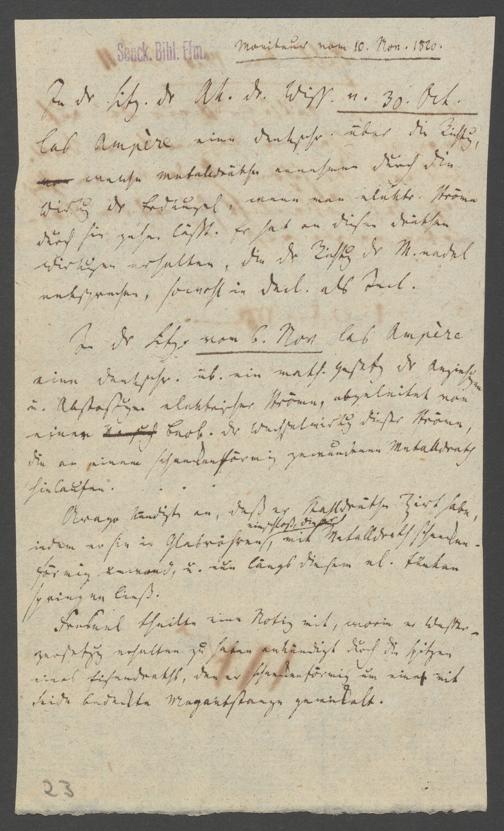 Senck. Bibl. Ffm.
Moniteur vom 10. Nov. 1820.
In dr Sitz. dr Ak. dr. Wiss. v. 30. Oct.
las Ampère eine Denkschr. über die Richtg,
welche Metalldräthe annehmen durch die
Wirkg der Erdkugel, wenn man elektr. Ströme
durch sie gehen läßt. Er hat an diesen Dräthen
Wirkugen erhalten, die dr Richtg dr M.nadel
entsprechen, sowohl in Decl. als Incl.
In dr Sitzg. vom 6. Nov. las Ampère
eine Denkschr. üb. ein math. Gesetz dr Anziehgen
u. Abstoßugen elektrischer Ströme, abgeleitet von
einer Beob. dr Wechselwirkg dieser Ströme,
die an einem schraubenförmig gewundenen Metalldrath
hinlaufen.
Arago kündigte an, daß er Stahldräthe magnetisirt habe,
indem er sie in Glasröhren einschloß, die er mit Metalldrath schrauben-
förmig umwand, u. nun längs diesem el. Funken
springen ließ.
Fresnel theilte eine Notiz mit, worin er Wasser-
zersetzg erhalten zu haben ankündigt durch die Spitzen
eines Eisendraths, den er schraubenförmig um eine mit
Seide bedeckte Magnetstange gewickelt.
23